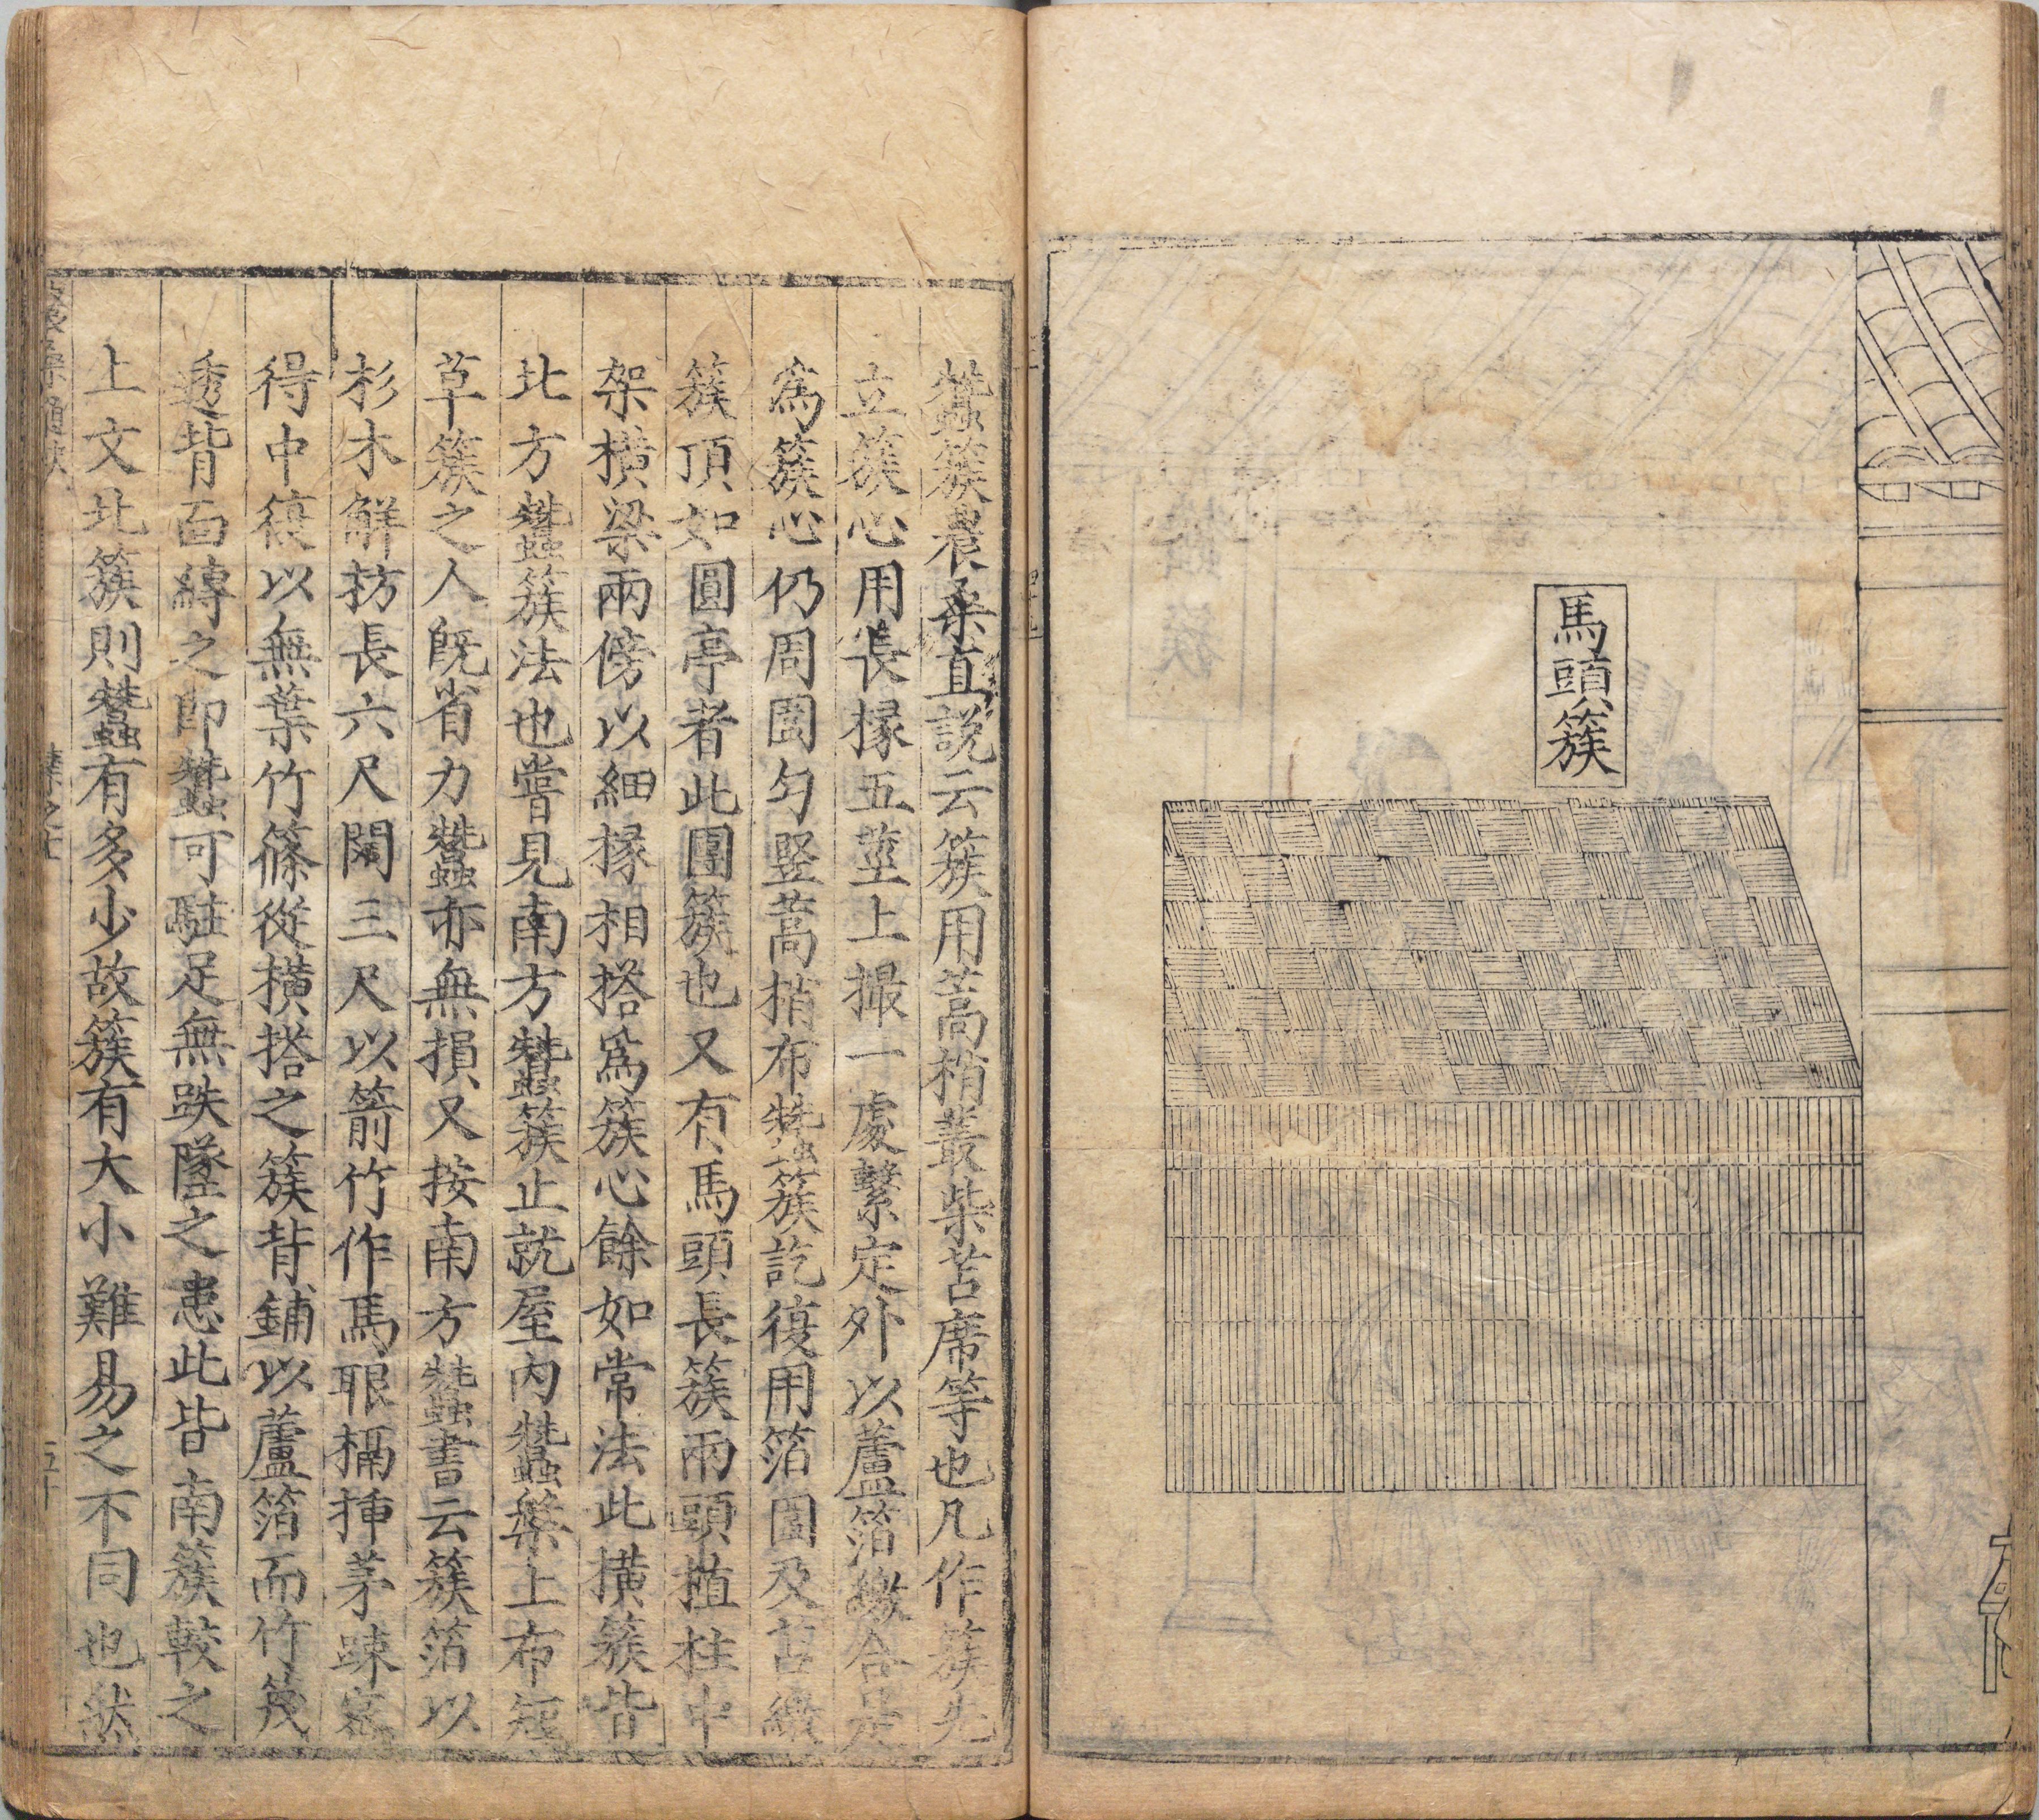 馬頭簇
蠶簇農桑直說云簇用蒿梢叢柴苫席等也凡作簇先
立簇心用長椽五莖上撮一處繫定外以蘆箔繳合是
為簇心仍周圍勻竪蒿梢布蠶簇訖復用箔圍及苫繳
簇頂如圓亭者此團簇也又有馬頭長簇兩頭植柱中
架橫梁兩傍以細椽相搭爲簇心餘如常法此橫簇皆
北方蠶簇法也嘗見南方蠶簇止就屋內蠶槃上布短
草簇之人既省力蠶亦無損又按南方蠶書云簇箔以
杉木解枋長六尺闊三尺以箭竹作馬眼槅揷茅踈密
得中復以無葉竹篠從橫搭之簇背鋪以蘆箔而竹篾
透背面縛之即蠶可駐足無跌墜之患此皆南簇較之
上文北簇則蠶有多少故簇有大小難易之不同也然